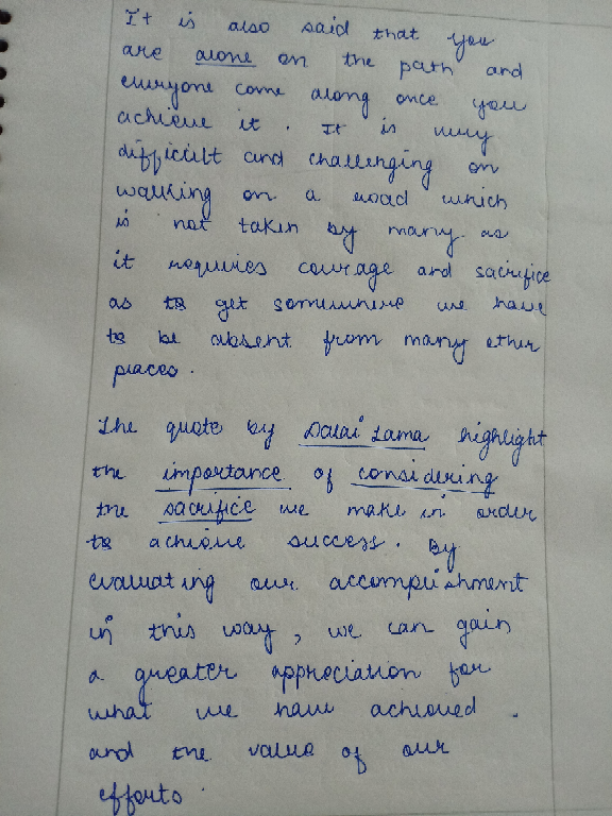 It is also said that you
are alone on the path and
everyone come along once you
achieve it. It is very
difficult and challenging on
walking on a road which
is not taken by many as
it requires courage and sacrifice
as to get somewhere we have
to be absent from many other
places.
The quote by Dalai Lama highlight
the importance of considering
the sacrifice we make in order
to achieve success. By
evaluating our accomplishment
in this way, we can gain
a greater appreciation for
what we have achieved.
and the value of our
efforts.